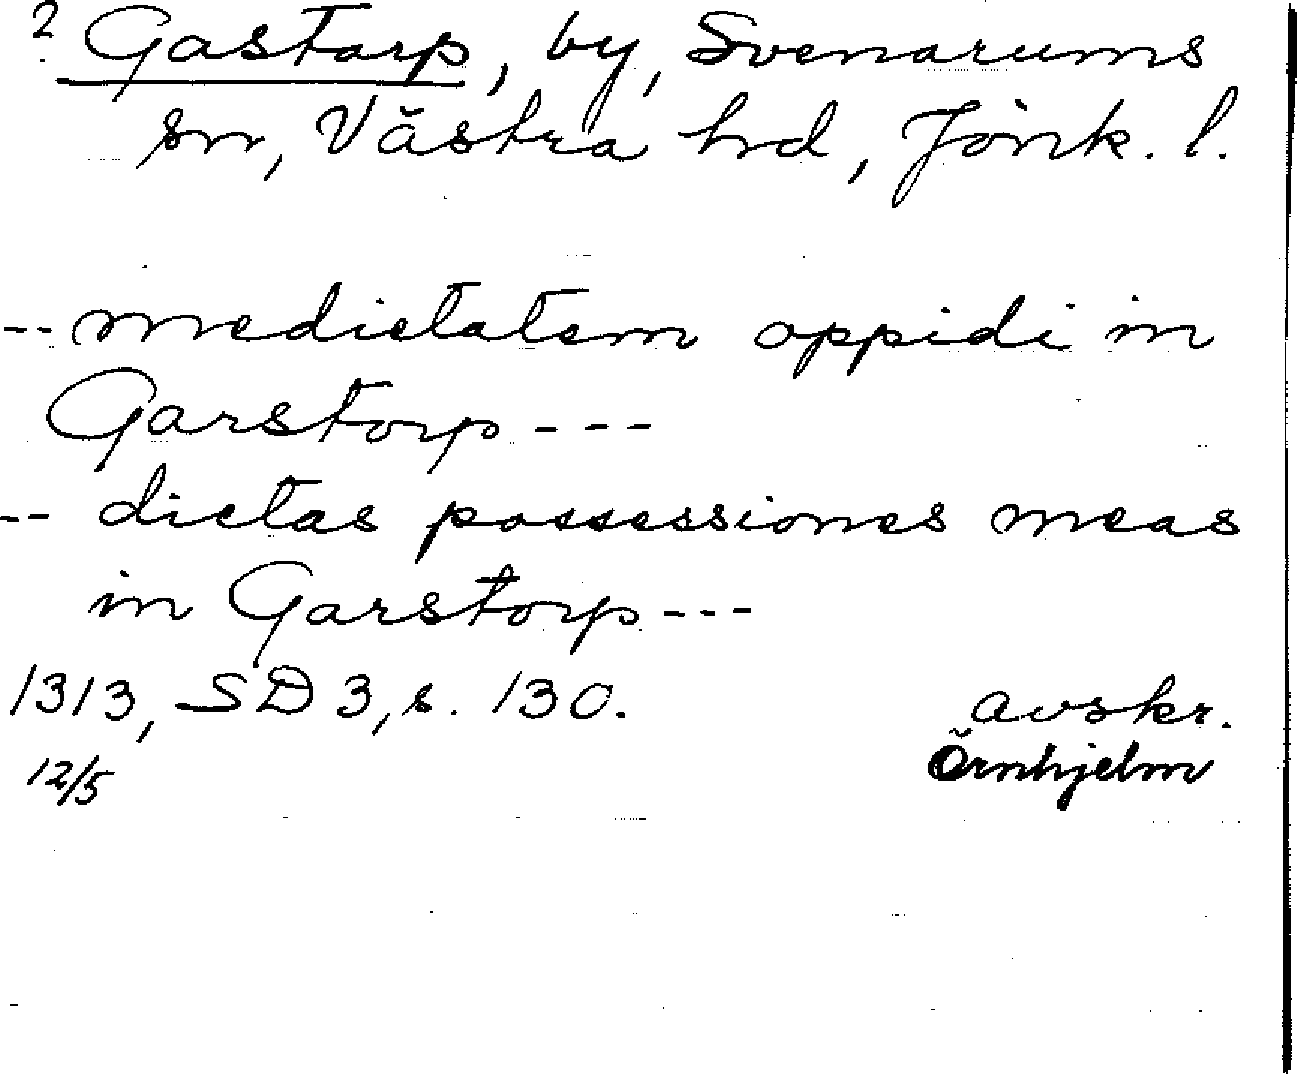 ? Gastarp, by, Svenarums
sn, Västra hd, Jönk. l.
-- medietatem oppidi in
Garstorp ---
-- dictas possessiones meas
in Garstorp ---
1313, SD 3, s. 130. avskr.
12/5 Örnhjelm